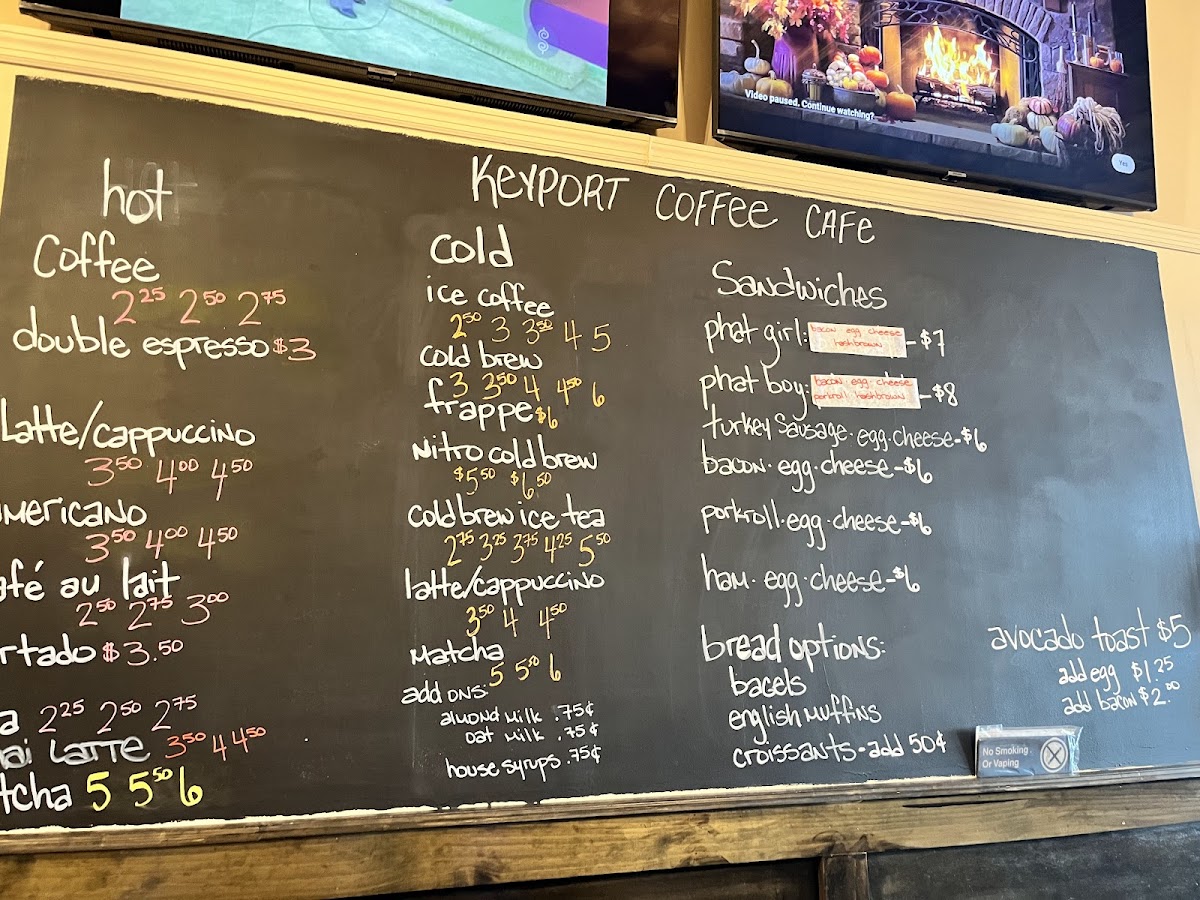 Video paused. Continue watching?
Yes
KEYPORT COFFEE CAFE
hot
Coffee
2.25 2.50 2.75
double espresso $3
Latte/cappuccino
3.50 4.00 4.50
mericano
3.50 4.00 4.50
afé au lait
2.50 2.75 3.00
rtado $3.50
a 2.25 2.50 2.75
ai Latte 3.50 4 4.50
tcha 5 5.50 6
cold
ice coffee
2.50 3 3.50 4 5
cold brew
3 3.50 4 4.50 6
frappe $6
Nitro cold brew
$5.50 $6.50
cold brew ice tea
2.75 3.25 3.75 4.25 5.50
latte/cappuccino
3.50 4 4.50
Matcha
5 5.50 6
add ons:
almond milk .75¢
oat milk .75¢
house syrups .75¢
Sandwiches
phat girl: bacon · egg · cheese hashbrown -$7
phat boy: bacon · egg · cheese porkroll hashbrown -$8
turkey sausage · egg · cheese -$6
bacon · egg · cheese -$6
porkroll · egg · cheese -$6
ham · egg · cheese -$6
bread options:
bagels
english muffins
croissants - add 50¢
avocado toast $5
add egg $1.25
add bacon $2.00
No Smoking
Or Vaping